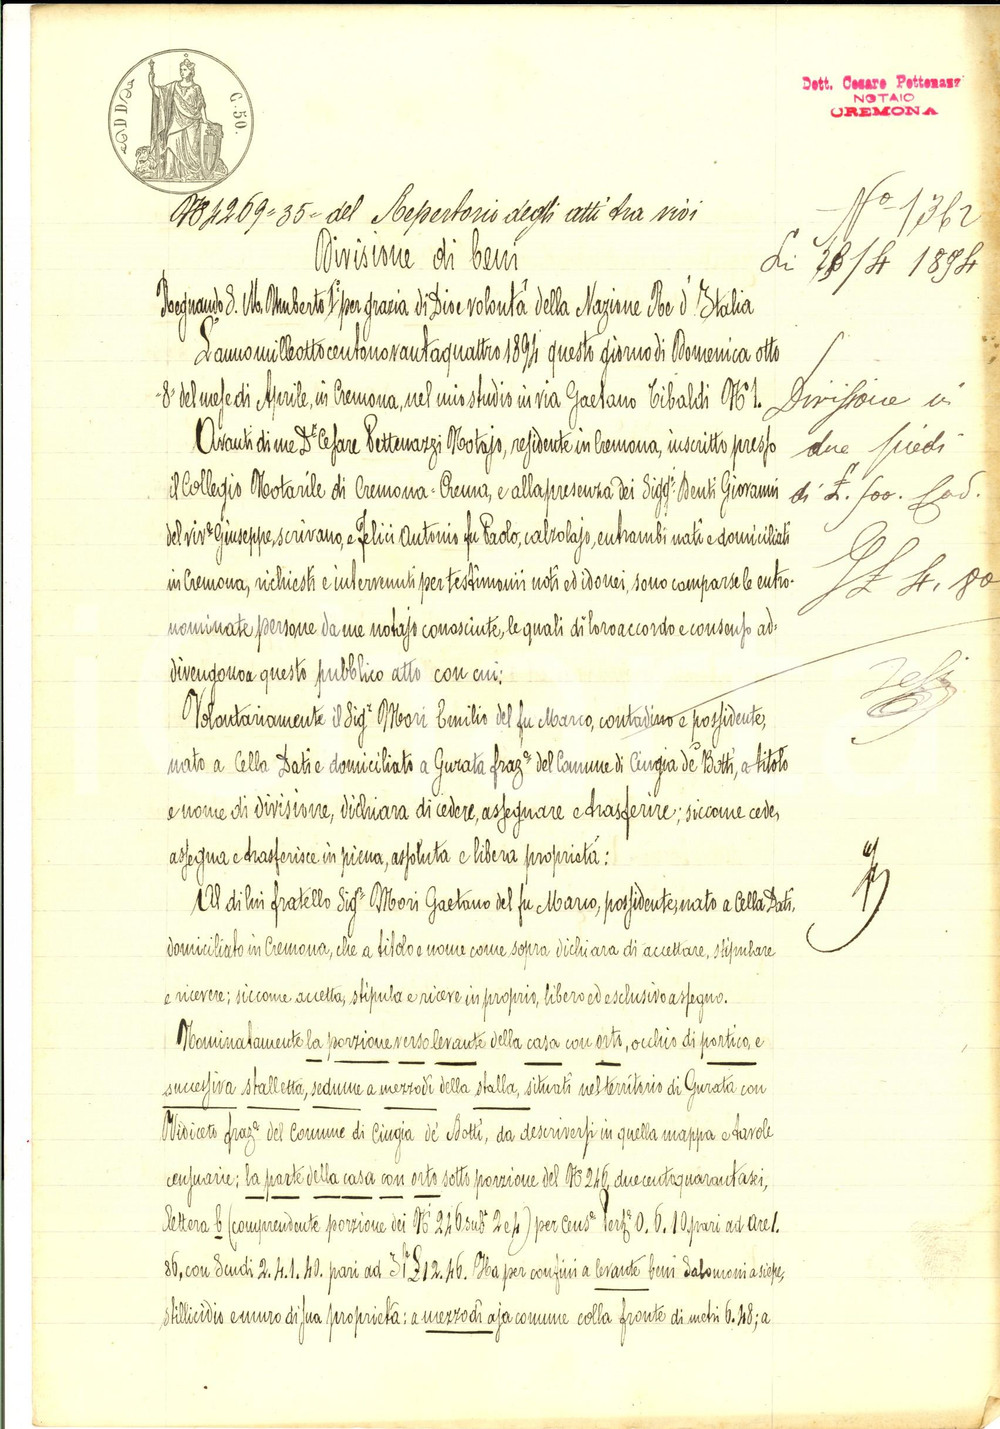 C. 50.
Dott. Cesare Pettenazzi
NOTAIO
CREMONA
N° 4269 = 35 = del Repertorio degli atti tra vivi
Divisione di beni
N° 1362
Li /4 1894
Regnando S. M. Umberto I° per grazia di Dio e volontà della Nazione Re d'Italia
L'anno milleottocentonovantaquattro 1894 questo giorno di Domenica otto
8 del mese di Aprile, in Cremona, nel mio studio in via Gaetano Tibaldi N° 1.
Avanti di me Dr. Cesare Pettenazzi Notajo, residente in Cremona, inscritto presso
il Collegio Notarile di Cremona-Crema, e alla presenza dei Sigg.ri Denti Giovanni
del viv.e Giuseppe, scrivano, e Felici Antonio fu Paolo, calzolajo, entrambi nati e domiciliati
in Cremona, richiesti e intervenuti per testimonii noti ed idonei, sono comparse le entro-
nominate persone da me notajo conosciute, le quali di loro accordo e consenso ad-
divengono a questo pubblico atto con cui:
Divisione in
due piedi
di £. 500. Cod.
£ 4. 80
Volontariamente il Sig.r Mori Emilio del fu Marco, contadino e possidente,
nato a Cella Dati e domiciliato a Gurata fraz.e del Comune di Cingia de' Botti, a titolo
e nome di divisione, dichiara di cedere, assegnare e trasferire; siccome cede,
assegna e trasferisce in piena, assoluta e libera proprietà:
Al di lui fratello Sig.r Mori Gaetano del fu Marco, possidente, nato a Cella Dati,
domiciliato in Cremona, che a titolo e nome come sopra dichiara di accettare, stipulare
e ricevere; siccome accetta, stipula e riceve in proprio, libero ed esclusivo assegno.
Nominatamente la porzione verso levante della casa con orto, occhio di portico, e
successiva stalletta, sedume a mezzodì della stalla, situati nel territorio di Gurata con
Vidiceto fraz.e del Comune di Cingia de' Botti, da descriversi in quella mappa e tavole
censuarie; la parte della casa con orto sotto porzione del N° 246, duecentoquarantasei,
lettera b (comprendente porzione dei N.i 246 sub. 2 e 4) per Cens.e Pert.e 0. 6. 10. pari ad are 1.
86, con Scudi 2. 4. 1. 40. pari ad It.e £ 12. 46. Ha per confini a levante beni Salomoni a siepe,
stillicidio e muro di sua proprietà: a mezzodì aja comune colla fronte di metri 6. 48; a